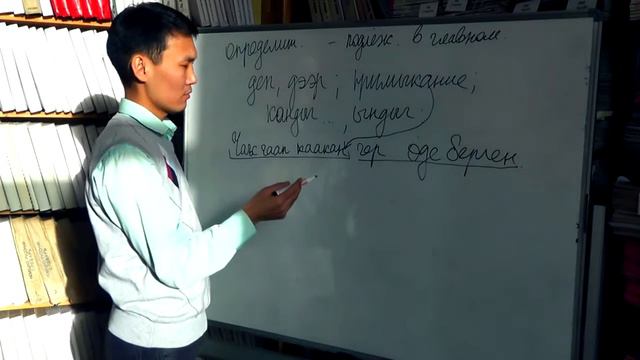 определит. - подлеж. в главном.
деп, дээр ; примыкание;
кандыг ..., ындыг.
Чаъс чаап каакан, гөр өде берген.